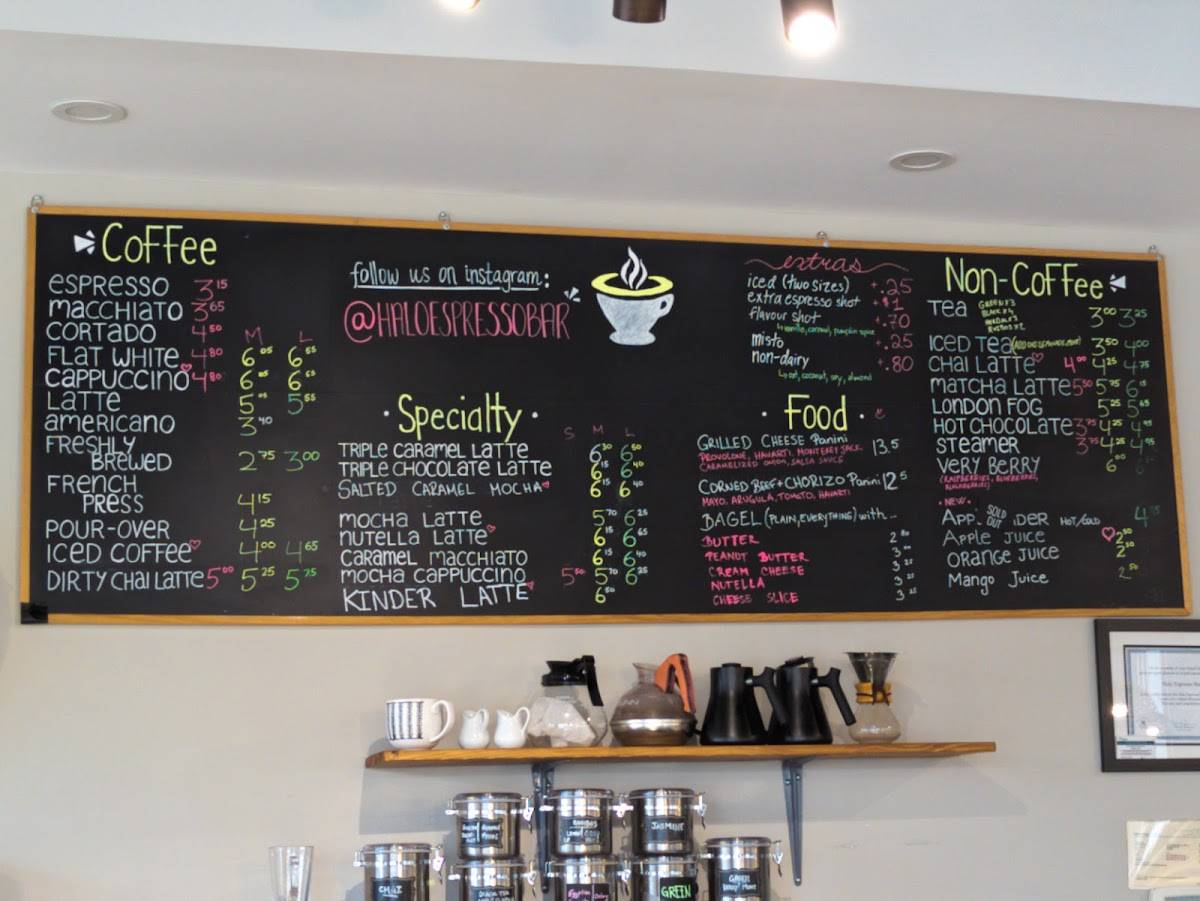 Coffee
ESPRESSO 3.15
MACCHIATO 3.65
CORTADO 4.50
M L
FLAT WHITE 4.80 6.05 6.55
CAPPUCCINO 4.80 6.05 6.65
LATTE 5.05 5.55
AMERICANO 3.40
FRESHLY
BREWED 2.75 3.00
FRENCH
PRESS 4.15
POUR-OVER 4.25
ICED COFFEE 4.00 4.65
DIRTY CHAI LATTE 5.00 5.25 5.75
follow us on instagram:
@HALOESPRESSOBAR
Specialty
S M L
TRIPLE CARAMEL LATTE 6.30 6.50
TRIPLE CHOCOLATE LATTE 6.15 6.40
SALTED CARAMEL MOCHA 6.15 6.40
MOCHA LATTE 5.70 6.25
NUTELLA LATTE 6.15 6.65
CARAMEL MACCHIATO 6.15 6.40
MOCHA CAPPUCCINO 5.50 5.70 6.25
KINDER LATTE 6.50
extras
iced (two sizes) +.25
extra espresso shot +$1
flavour shot +.70
vanilla, caramel, pumpkin spice
misto +.25
non-dairy +.80
oat, coconut, soy, almond
Food
GRILLED CHEESE Panini 13.5
PROVOLONE, HAVARTI, MONTEREY JACK,
CARAMELIZED ONION, SALSA SAUCE
CORNED BEEF + CHORIZO Panini 12.5
MAYO, ARUGULA, TOMATO, HAVARTI
BAGEL (PLAIN, EVERYTHING) with...
BUTTER
PEANUT BUTTER
CREAM CHEESE 3.25
NUTELLA 3.25
CHEESE SLICE 3.25
Non-Coffee
TEA 3.00 3.25
GREEN x3
BLACK x4
HERBAL x3
ROOIBOS x2
ICED TEA 3.50 4.00
CHAI LATTE 4.00 4.25 4.75
MATCHA LATTE 5.50 5.75 6.15
LONDON FOG 5.25 5.65
HOT CHOCOLATE 3.75 4.25 4.75
STEAMER 3.75 4.25 4.75
VERY BERRY 6.00
(RASPBERRIES, BLUEBERRIES,
BLACKBERRIES)
NEW
APP SOLD OUT IDER HOT/COLD
Apple Juice 2.50
Orange Juice 2.50
Mango Juice 2.50
JASMINE
CHAI
GREEN